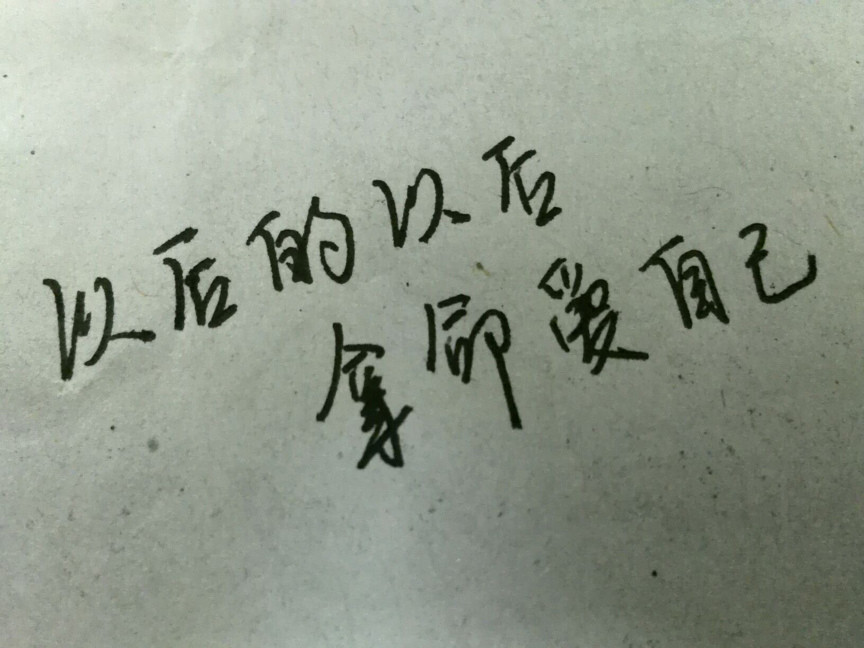 以后的以后
余部爱自己